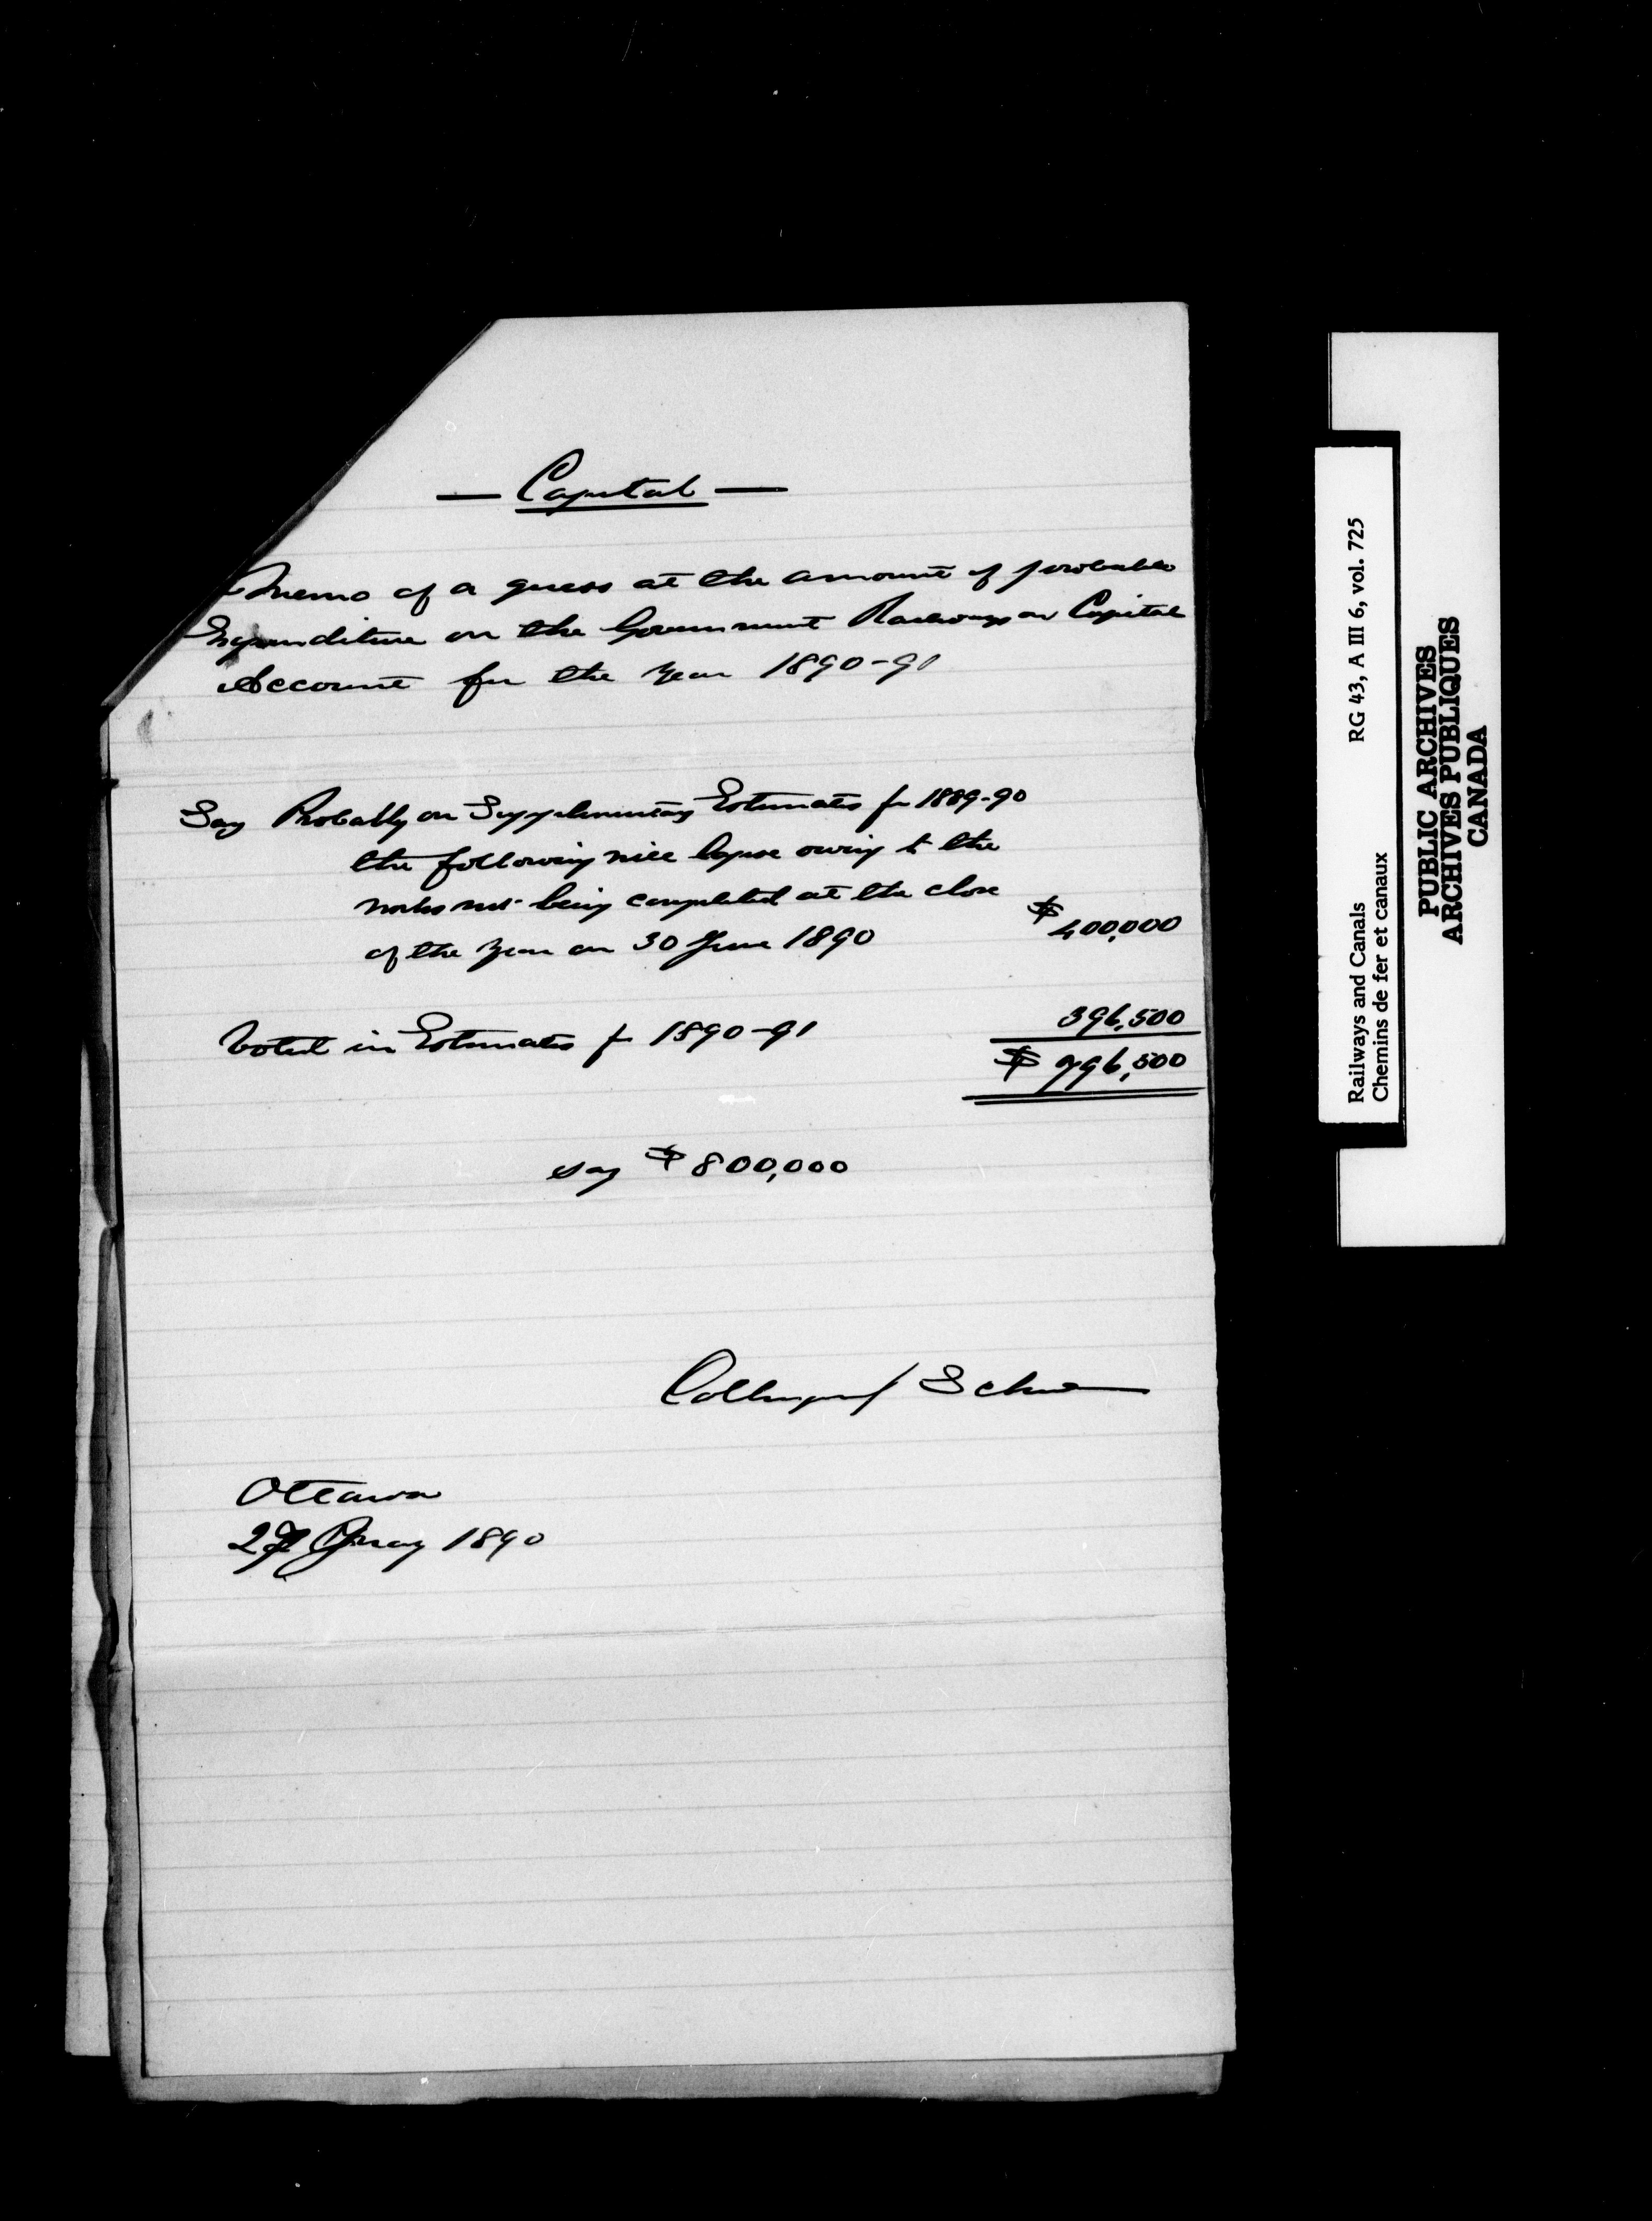 — Capital —
Memo of a guess at the amount of probable
Expenditure on the Government Railways on Capital
Account for the year 1890-91
Say Probably on Supplementary Estimates for 1889-90
the following will lapse owing to the
works not being completed at the close
of the year on 30 June 1890
$ 400,000
Voted in Estimates for 1890-91
396,500
$ 796,500
say $ 800,000
Collingwood Schreiber
Ottawa
May 1890
Railways and Canals RG 43, A III 6, vol. 725
Chemins de fer et canaux
PUBLIC ARCHIVES
ARCHIVES PUBLIQUES
CANADA